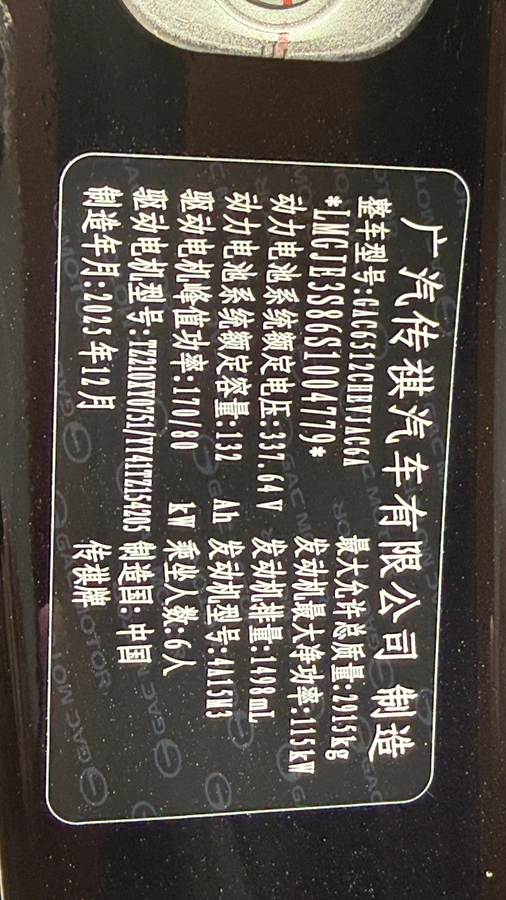 广汽传祺汽车有限公司 制造
整车型号:GAC6512CHEVJAC6A 最大允许总质量:2915kg
*LMGJE3S86S1004779* 发动机最大净功率:115kW
动力电池系统额定电压:337.64V 发动机排量:1498mL
动力电池系统额定容量:132 Ah 发动机型号:4A15N3
驱动电机峰值功率:170/80 kW 乘坐人数:6人
驱动电机型号:TZ210XY0751/TY417Z154205 制造国:中国
制造年月:2025年12月 传祺牌
GAC MOTOR